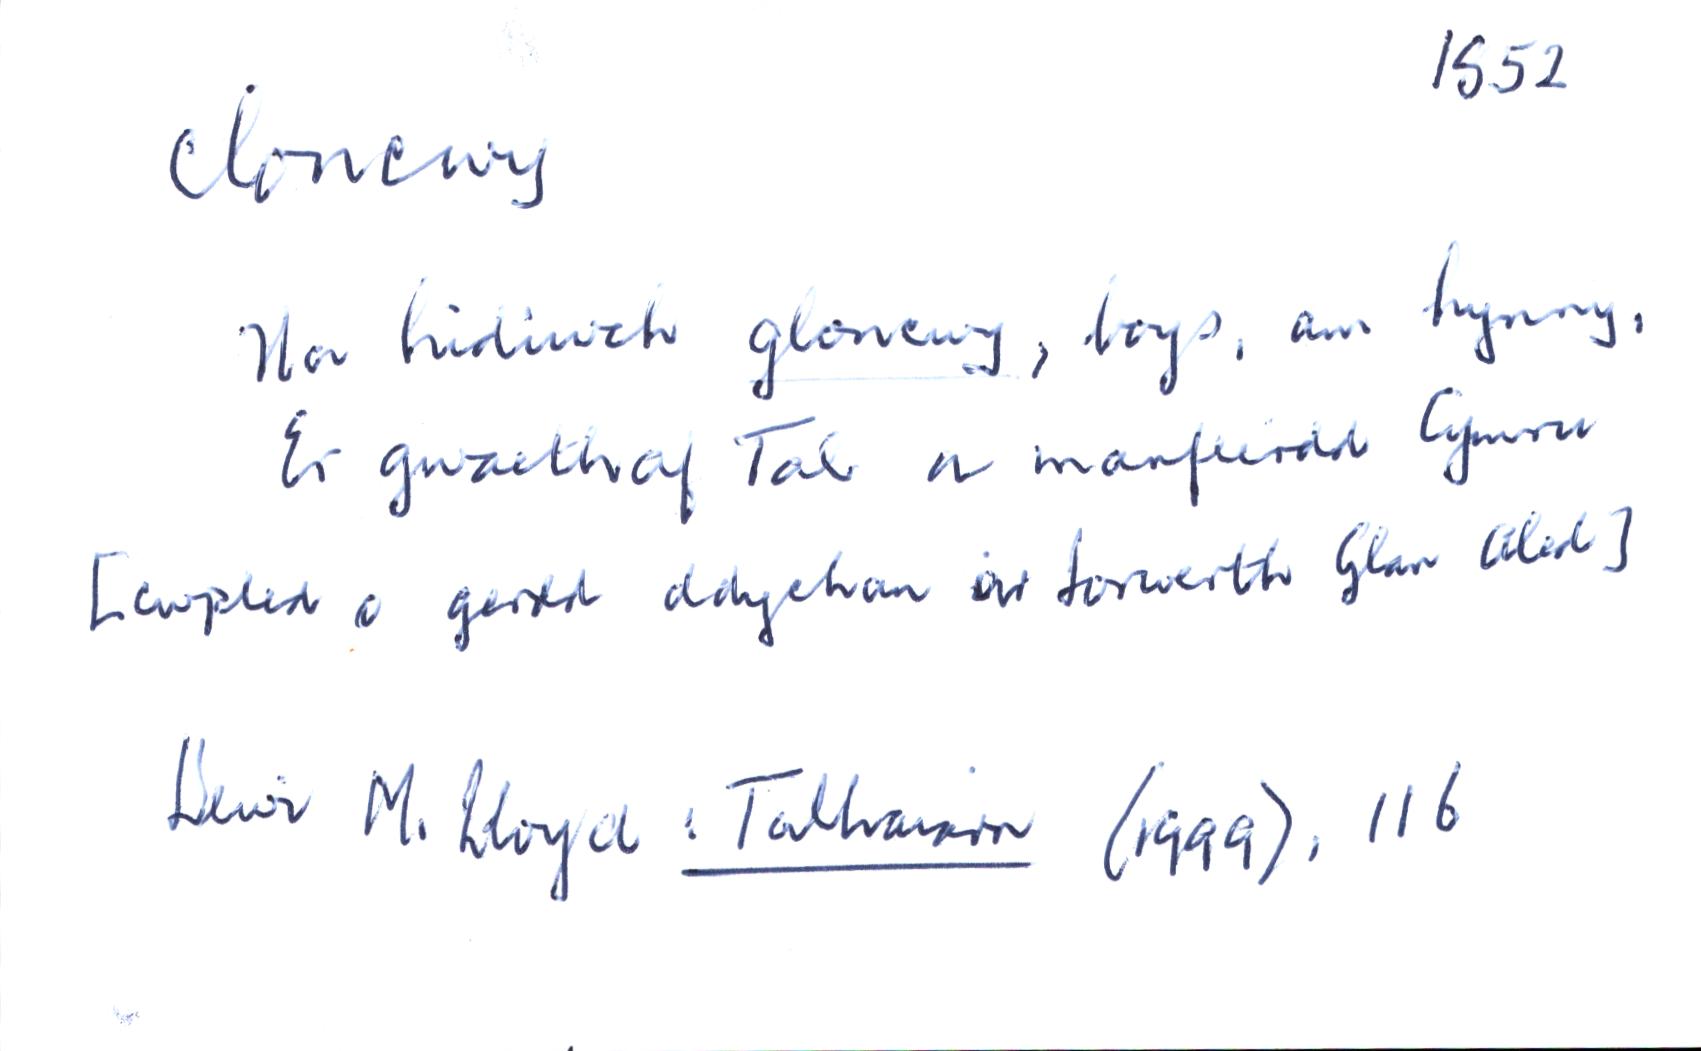 1852
cloncwy
Na hidiwch gloncwy, boys, am hynny,
Er gwaethaf Tal a manfeirdd Cymru
[cwpled o gerdd ddychan i'w Iorwerth Glan Aled]
Dewi M. Lloyd : Talhaiarn (1999), 116